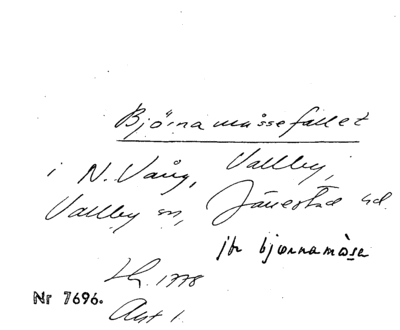 Björnamåssefallet
i N. Vång, Vallby,
Vallby sn, Järrestad hd.
jfr bjornamåse
Lh. 1778
Nr 7696.
Akt 1.